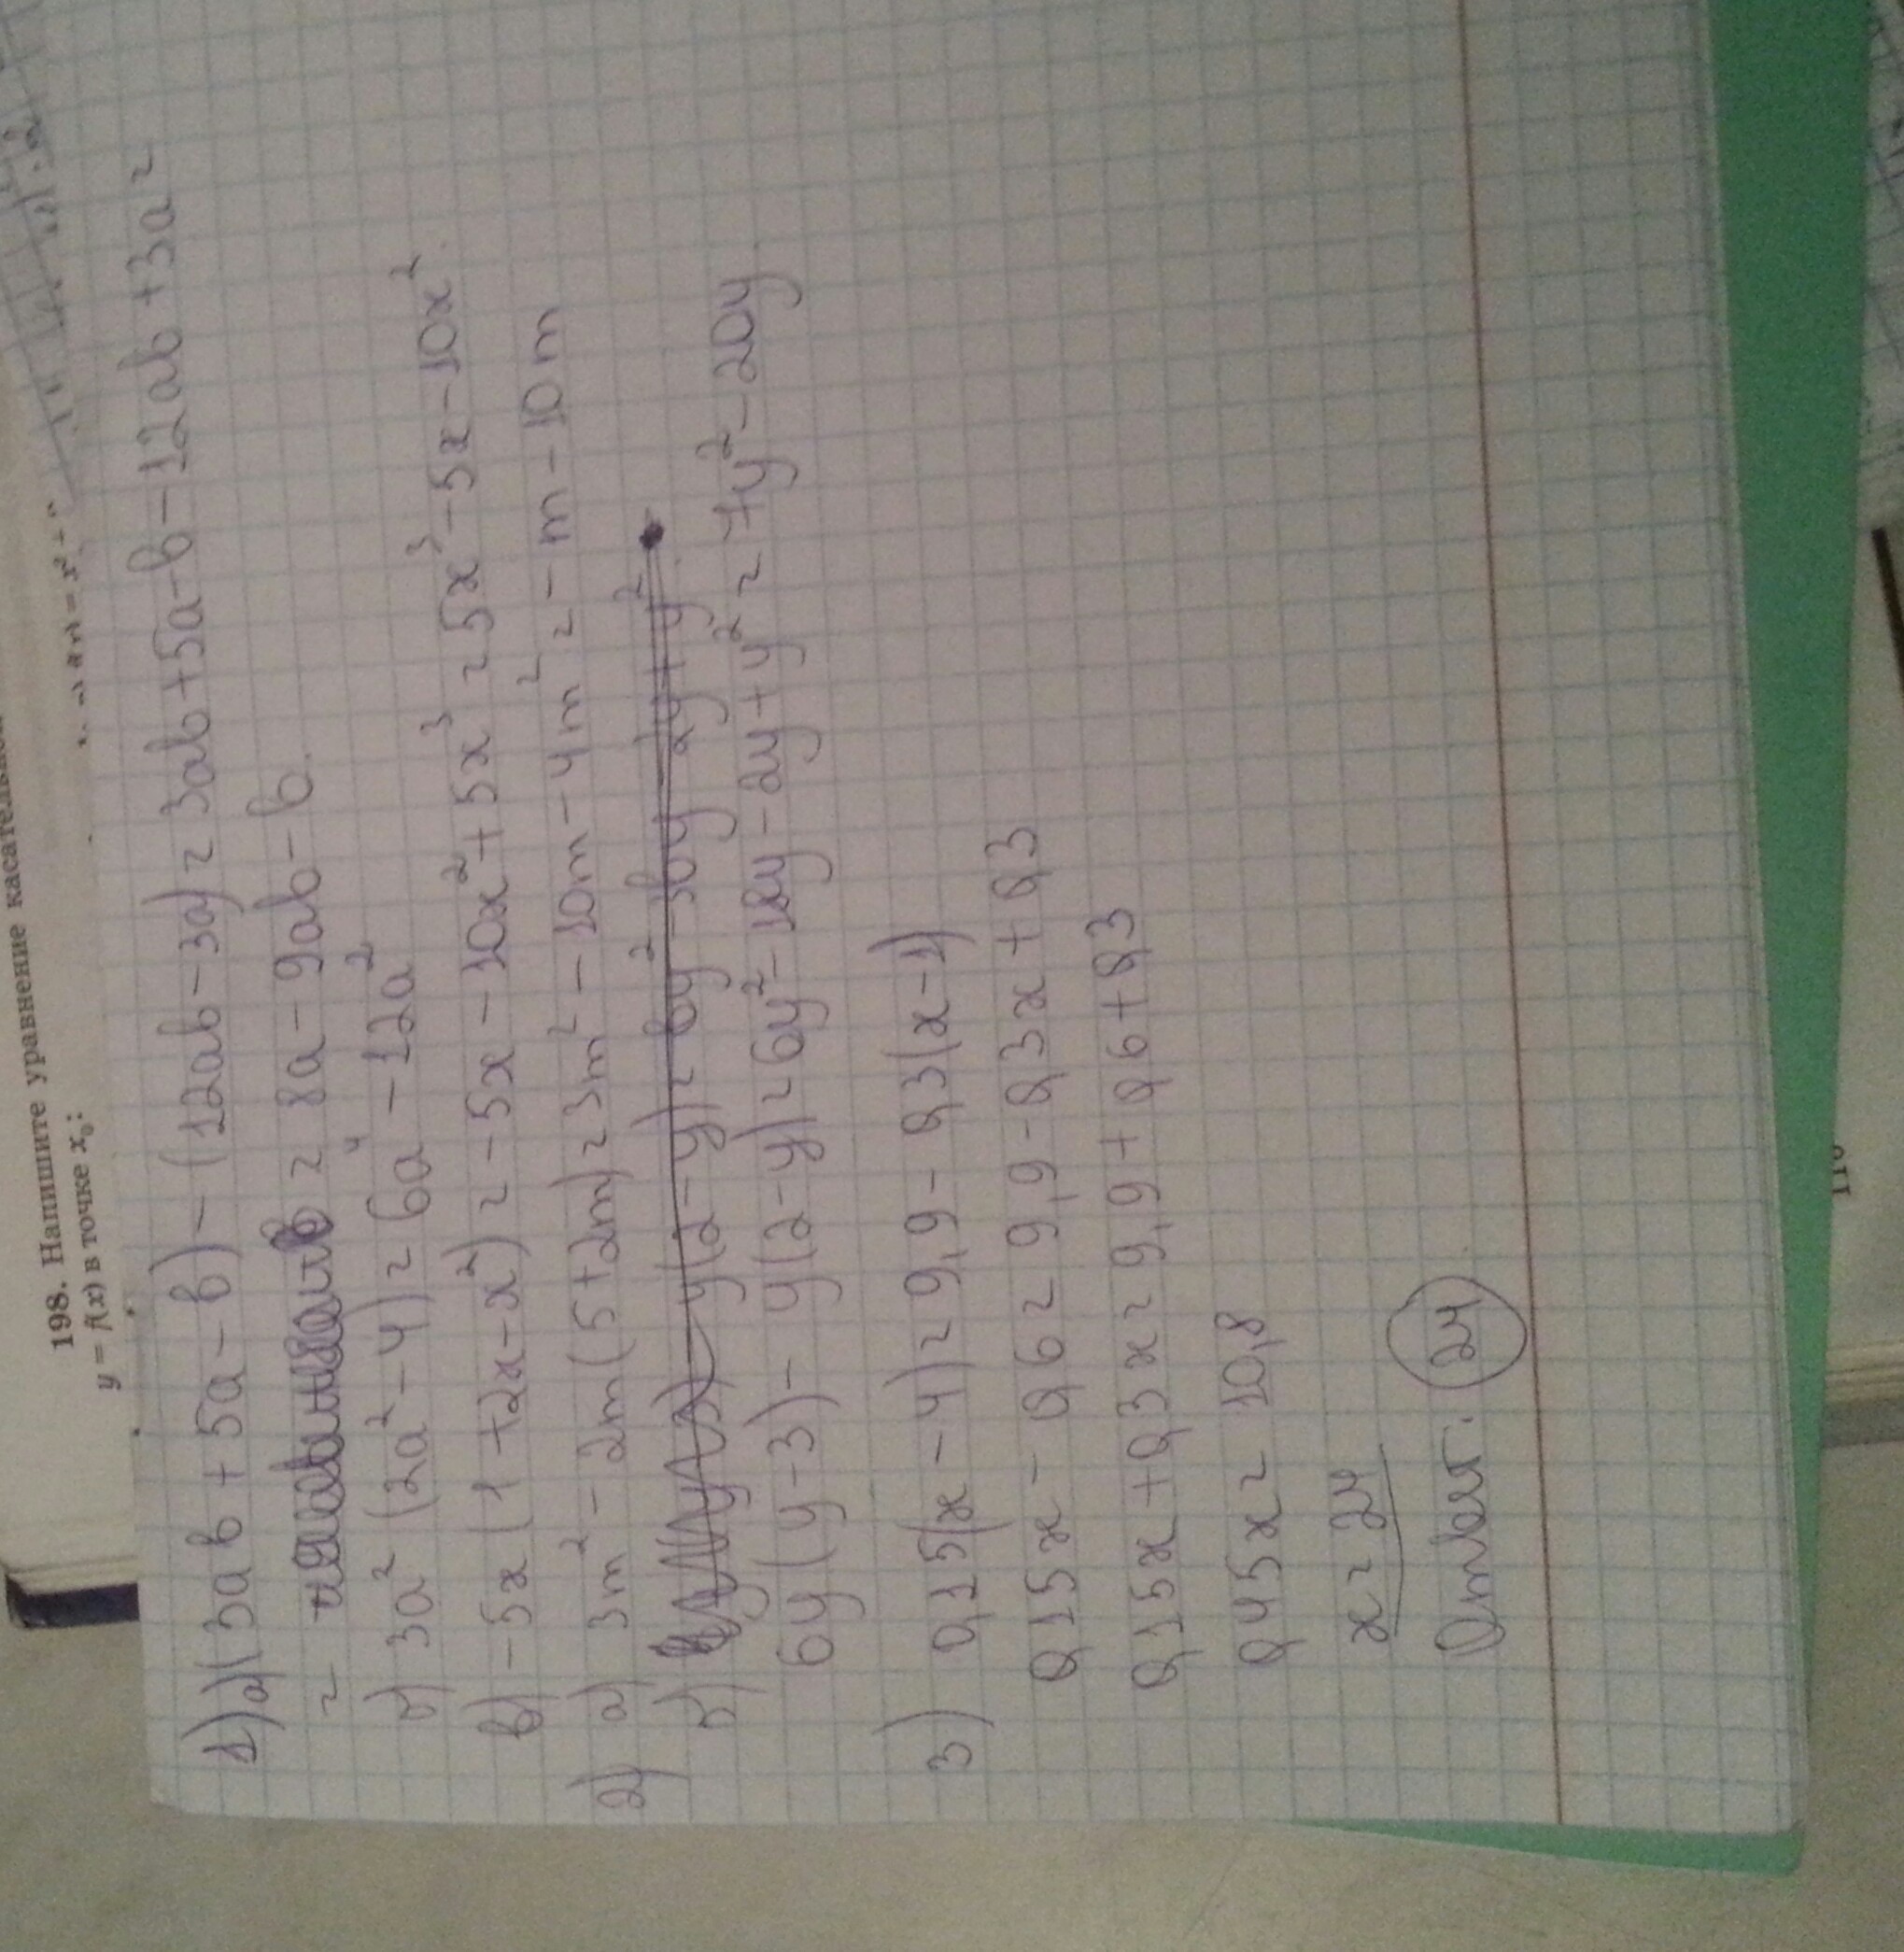 198. Напишите уравнение
y = f(x) в точке x₀:
1) а) (3ab + 5a - b) - (12ab - 3a) = 3ab + 5a - b - 12ab + 3a =
= = 8a - 9ab - b.
б) 3a² (2a² - 4) = 6a⁴ - 12a²
в) -5x (1 + 2x - x²) = -5x - 10x² + 5x³ = 5x³ - 5x - 10x².
2) а) 3m² - 2m (5 + 2m) = 3m² - 10m - 4m² = - m² - 10m
б) - y(2 - y) = 6y² - 2y + y²
6y (y - 3) - y (2 - y) = 6y² - 18y - 2y + y² = 7y² - 20y
3) 0,15(x - 4) = 9,9 - 0,3(x - 1)
0,15x - 0,6 = 9,9 - 0,3x + 0,3
0,15x + 0,3x = 9,9 + 0,6 + 0,3
0,45x = 10,8
x = 24
Ответ: 24.